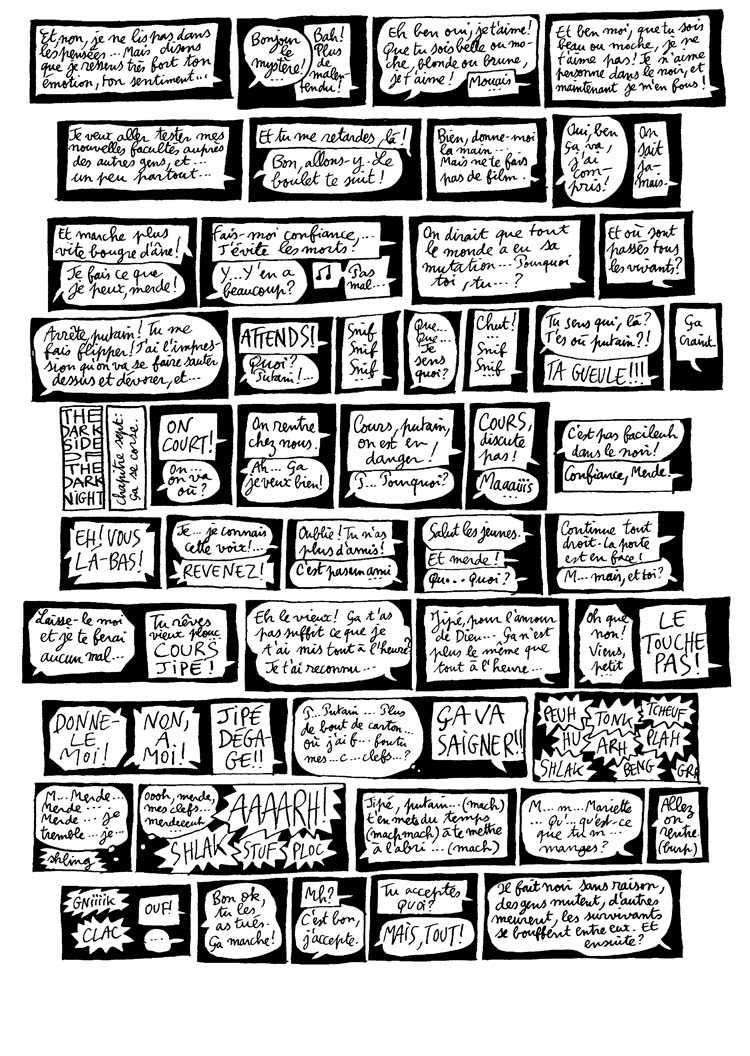 Et non, je ne lis pas dans
les pensées... Mais disons
que je ressens très fort ton
émotion, ton sentiment...
Bonjour
le
mystère!
Bah!
Plus
de
malen-
tendu!
Eh ben oui, je t'aime!
Que tu sois belle ou mo-
che, blonde ou brune,
je t'aime!
Mouais
Et ben moi, que tu sois
beau ou moche, je ne
t'aime pas! Je n'aime
personne dans le noir, et
maintenant je m'en fous!
Je veux aller tester mes
nouvelles facultés auprès
des autres gens, et...
un peu partout...
Et tu me retardes, là!
Bon, allons-y. Le
boulet te suit!
Bien, donne-moi
la main...
Mais ne te fais
pas de film.
Oui, ben
ça va,
j'ai
com-
pris!
On
sait
ja-
mais.
Et marche plus
vite bougre d'âne!
Je fais ce que
je peux, merde!
Fais-moi confiance,...
J'évite les morts!
Y... Y'en a
beaucoup?
♫
Pas
mal...
On dirait que tout
le monde a eu sa
mutation... Pourquoi
toi, tu...?
Et où sont
passés tous
les vivants?
Arrête, putain! Tu me
fais flipper! J'ai l'impres-
sion qu'on va se faire sauter
dessus et dévorer, et...
ATTENDS!
Quoi?
Putain!...
Snif
Snif
Snif...
Que...
Que...
Je
sens
quoi?
Chut!
...
Snif
Snif
...
Tu sens qui, là?
T'es où putain?!
TA GUEULE!!!
Ça
craint.
THE
DARK
SIDE
OF
THE
DARK
NIGHT
chapitre sept:
Ça se corse.
ON
COURT!
On...
on va
où?
On rentre
chez nous.
Ah... Ça
je veux bien!
Cours, putain,
on est en
danger!
P... Pourquoi?
COURS,
discute
pas!
Maaaiiis
...
C'est pas facileuh
dans le noir!
Confiance, Merde.
EH! VOUS
LÀ-BAS!
Je... je connais
cette voix!...
REVENEZ!
Oublie! Tu n'as
plus d'amis!
C'est pas un ami
...
Salut les jeunes.
Et merde!
Qu... quoi?
Continue tout
droit. La porte
est en face!
M... mais, et toi?
Laisse-le moi
et je te ferai
aucun mal...
Tu rêves
vieux plouc.
COURS
JIPÉ!
Eh le vieux! Ça t'as
pas suffit ce que je
t'ai mis tout à l'heure?
Je t'ai reconnu...
Jipé, pour l'amour
de Dieu... Ça n'est
plus le même que
tout à l'heure...
Oh que
non!
Viens,
petit
...
LE
TOUCHE
PAS!
DONNE-
LE
MOI!
NON,
À
MOI!
JIPÉ
DÉGA-
GE!!
P... Putain... Plus
de bout de carton...
où j'ai f... foutu
mes... c... clefs...?
ÇA VA
SAIGNER!!
PEUH
TONK
TCHEUF
HU
ARH
PLAH
SHLAK
BENG
GRA
M... Merde...
Merde...
Merde... je
tremble... je...
shling
oooh, merde,
mes clefs...
merdeeeuh
AAAARH!
SHLAK
STUF
PLOC
Jipé, putain... (mach)
t'en mets du temps
(machmach) à te mettre
à l'abri... (mach)
M... m... Mariette
... Qu'... qu'est-ce
que tu m...
manges?
Allez
on
rentre.
(burp)
GNiiiiK
CLAC
OUF!
...
Bon ok,
tu les
as tués.
Ça marche!
Mh?
C'est bon,
j'accepte.
Tu acceptes
QUOI?
MAIS, TOUT!
Il fait noir sans raison,
des gens mutent, d'autres
meurent, les survivants
se bouffent entre eux. Et
ensuite?